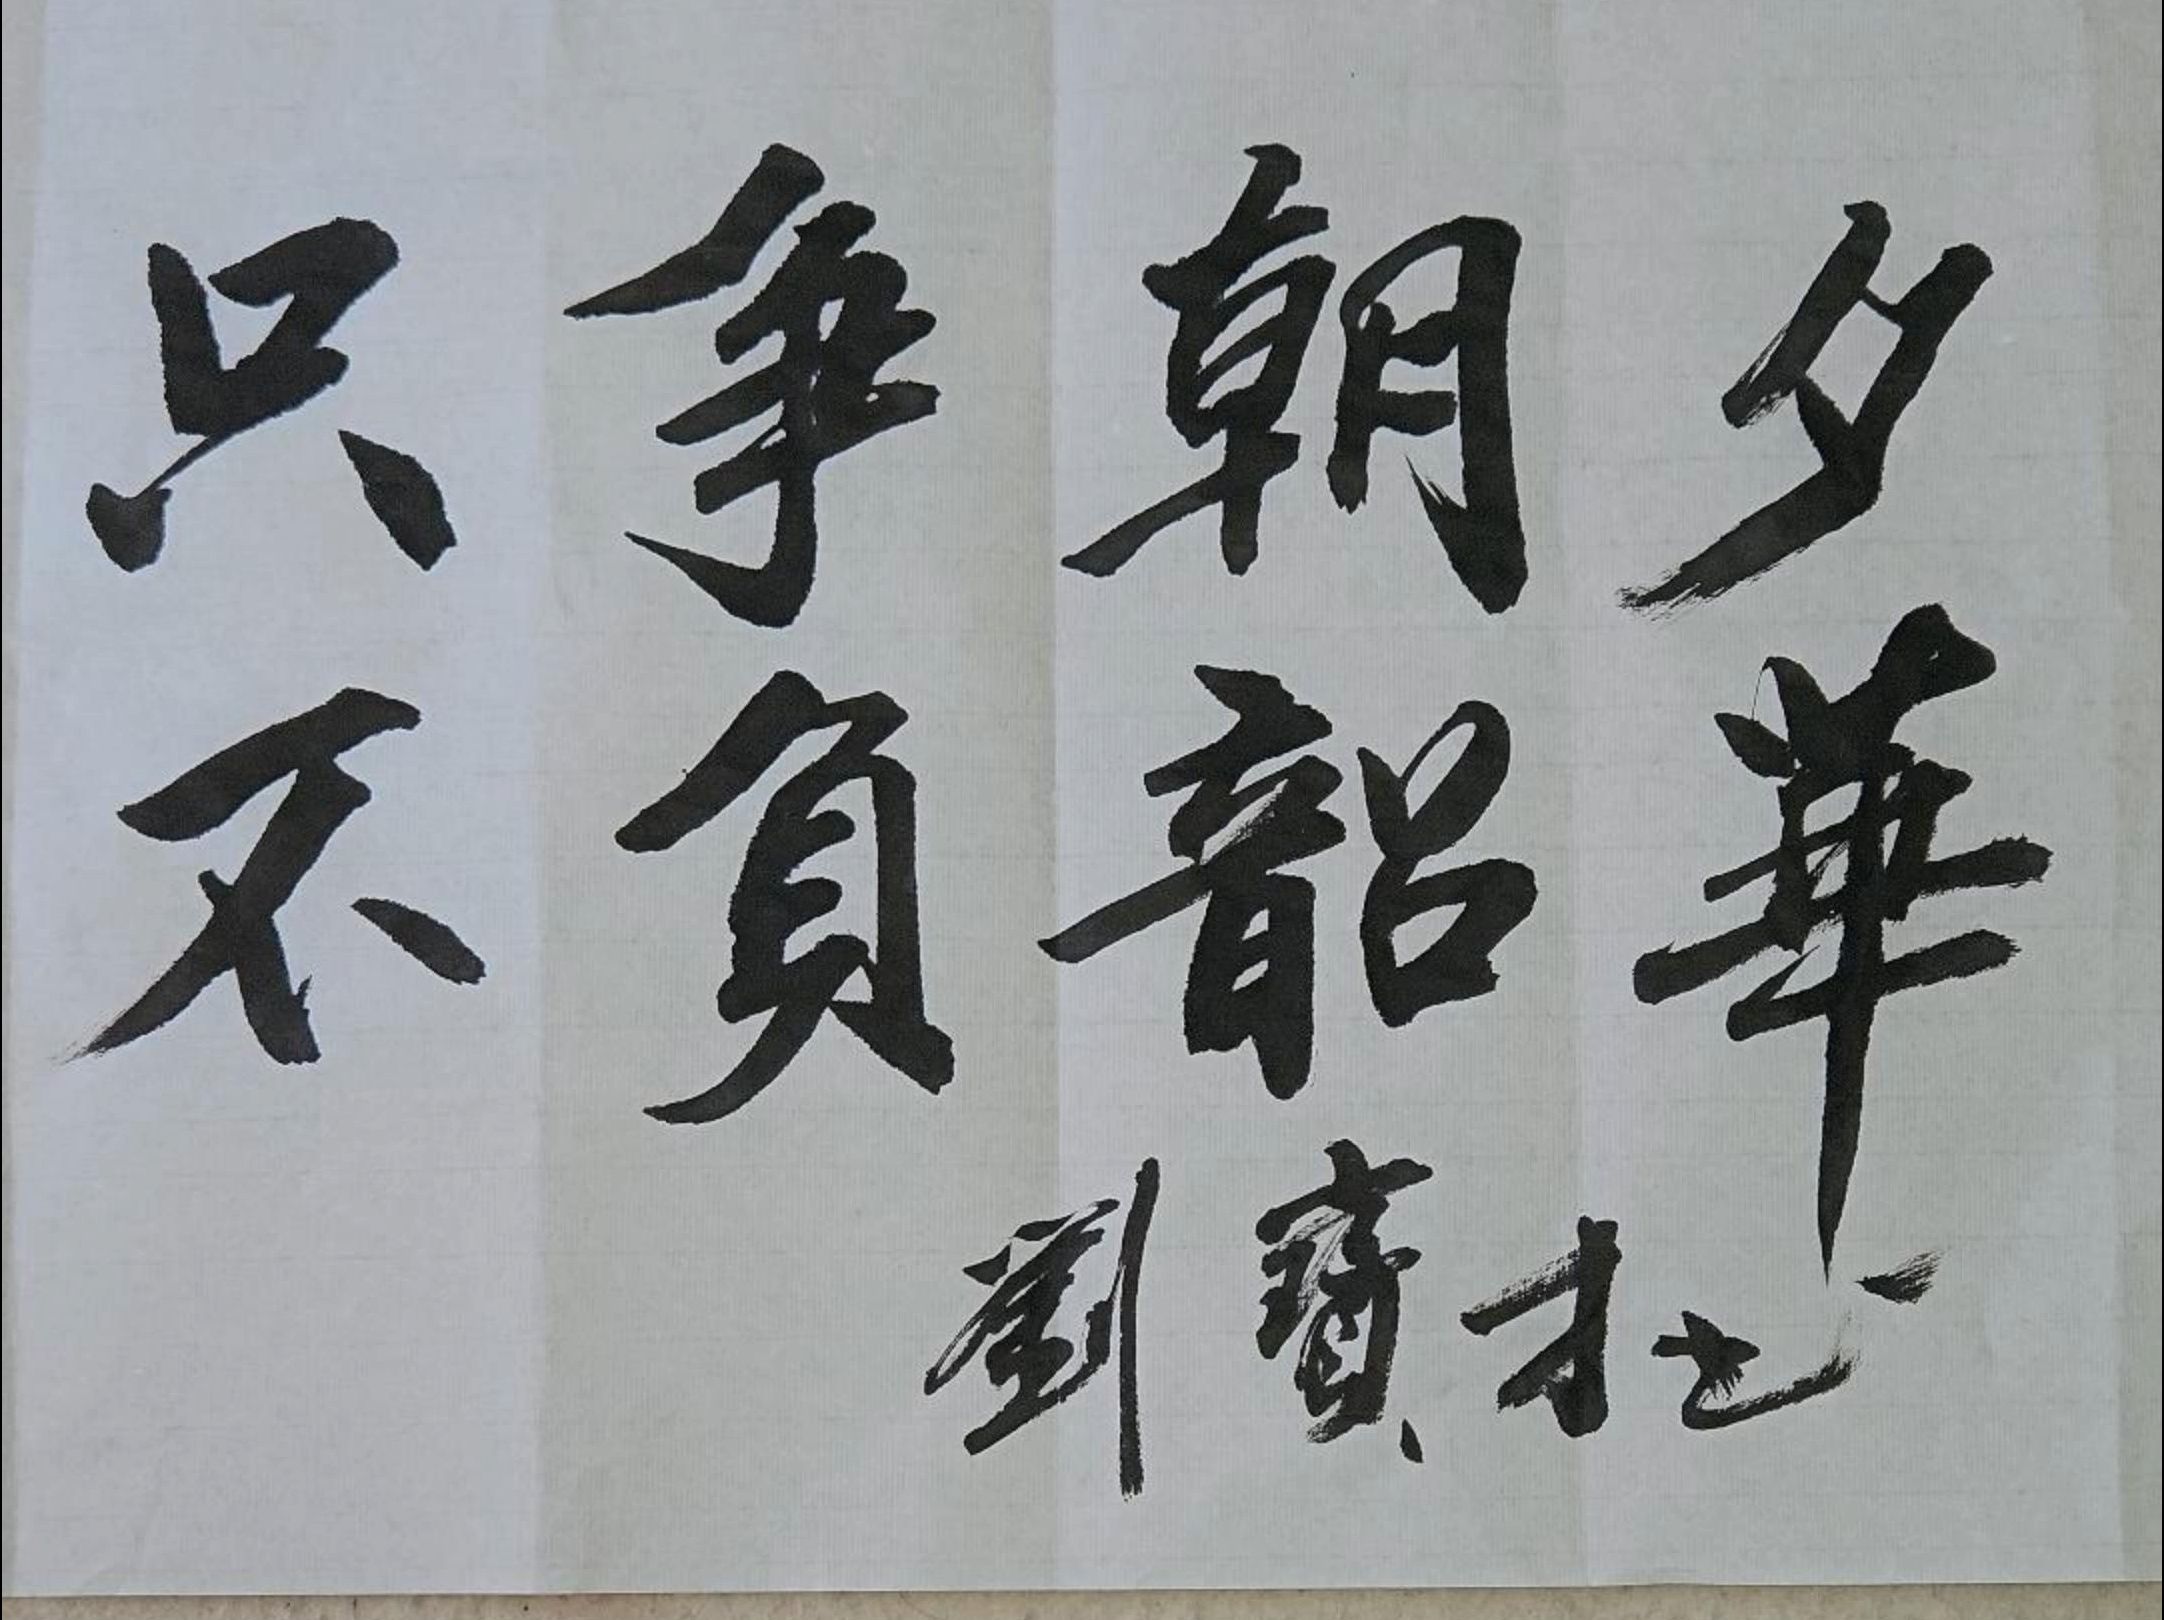 只争朝夕
不負韶華
劉寶才书